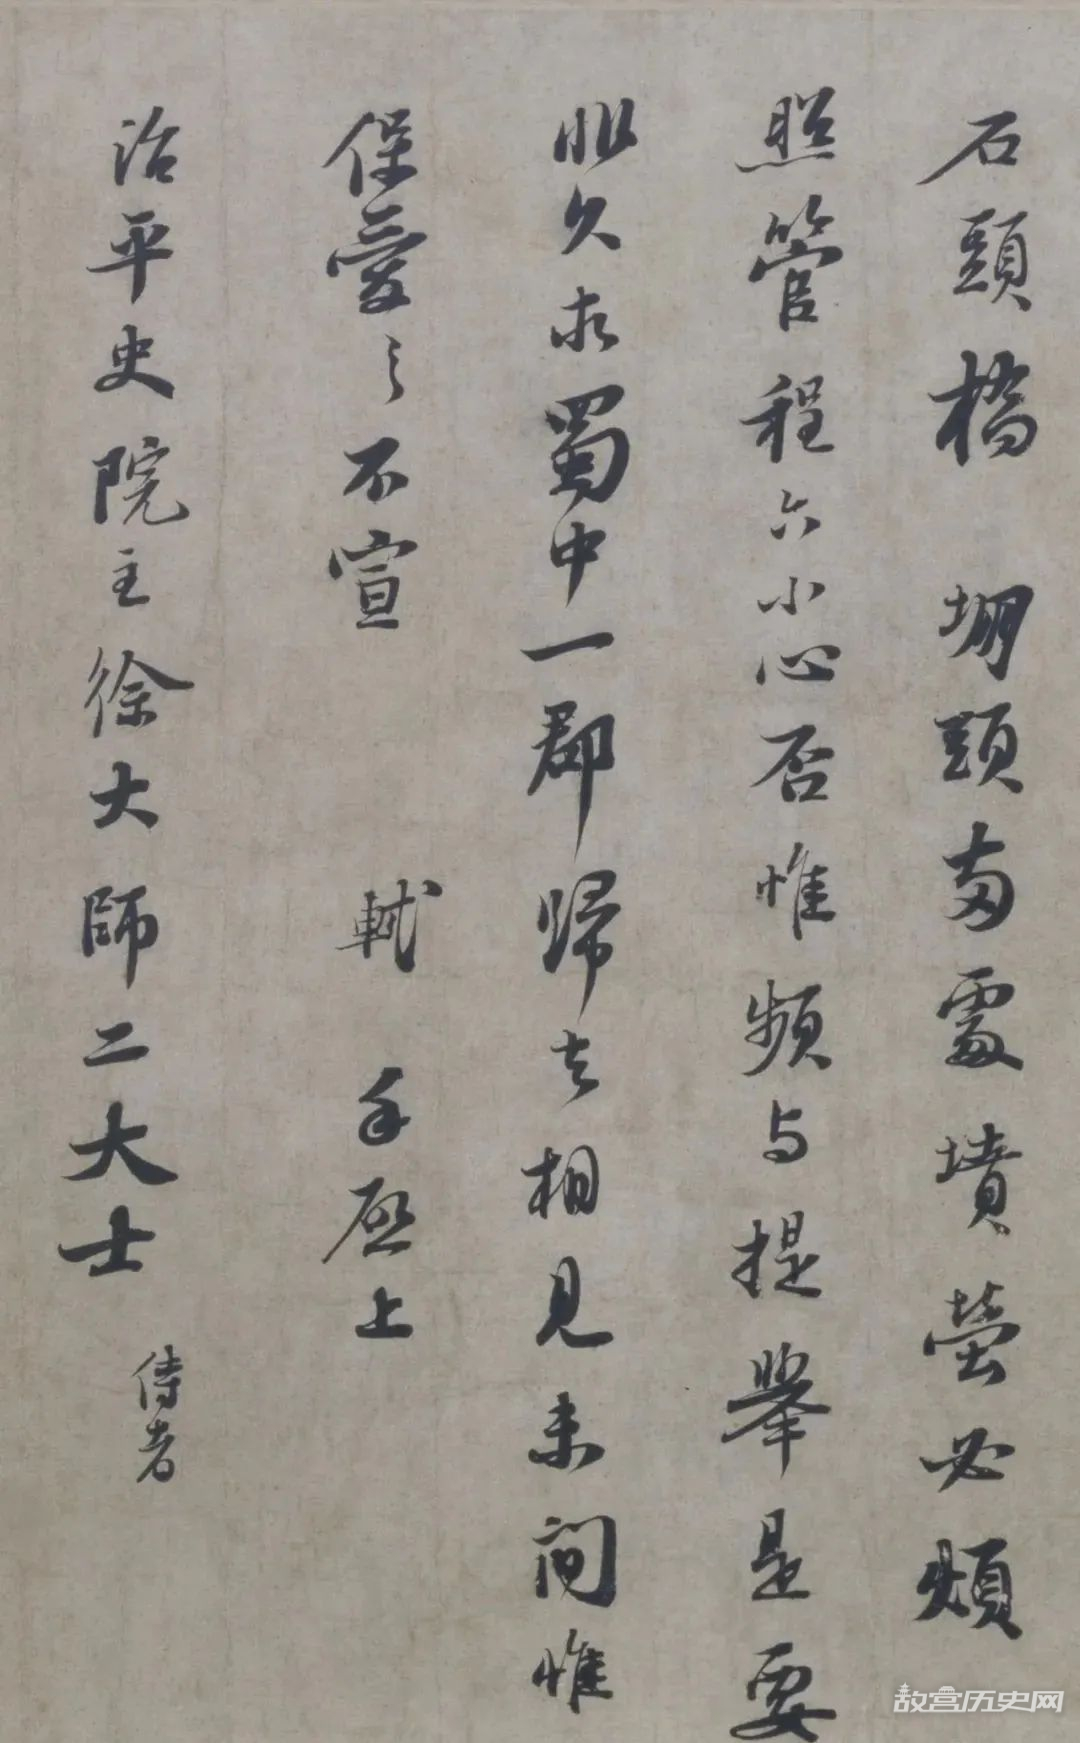 石頭橋 堋頭兩處墳塋必煩
照管程六小心否惟頻与提舉是要
非久求蜀中一郡歸去相見未間惟
保愛之不宣 軾 手啓上
治平史院主徐大師二大士 侍者
故宫历史网